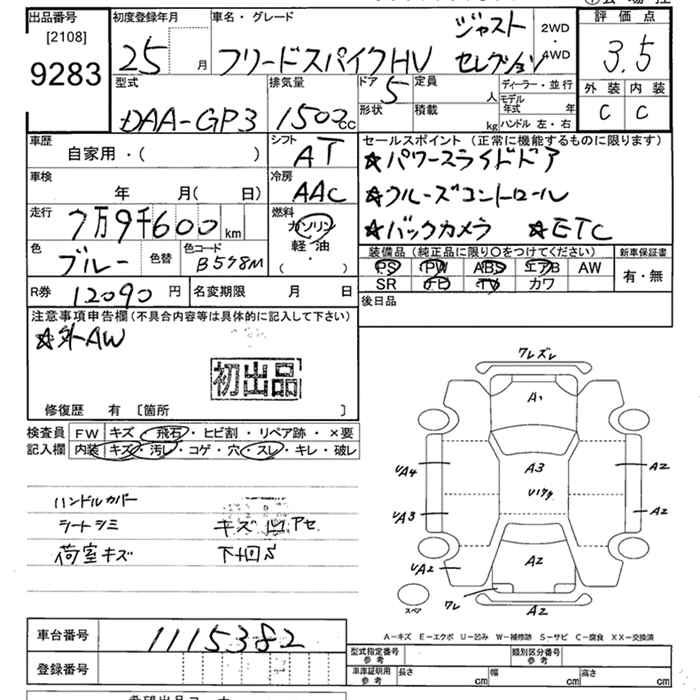 出品番号 [2108] 9283
初度登録年月 25 月
車名・グレード フリードスパイクHV ジャストセレクション
2WD・4WD
評価点 3.5
外装 内装
C C
型式 DAA-GP3
排気量 1500cc
ドア 5 形状
定員 人 積載 kg
ディーラー・並行
モデル年式 年
ハンドル 左・右
車歴 自家用・( )
シフト AT
セールスポイント (正常に機能するものに限ります)
☆パワースライドドア
☆クルーズコントロール
☆バックカメラ ☆ETC
車検 年 月( 日)
冷房 AAC
走行 7万9千600km
燃料 ガソリン 軽油 ( ・ )
色 ブルー 色替
色コード B578M
装備品 (純正品に限り○をつけてください)
PS PW ABS エアB AW
SR TV カワ
新車保証書 有・無
R券 12090円
名変期限 月 日
後日品
注意事項申告欄(不具合内容等は具体的に記入して下さい)
☆外AW
初出品
修復歴 有 [箇所 ]
検査員記入欄
FW キズ・飛石・ヒビ割・リペア跡・×要
内装 キズ・汚レ・コゲ・穴・スレ・キレ・破レ
ハンドルカバー
シートシミ キズ凹アセ
荷室キズ 下回S
ワレズレ
A1
UA4 A3 A2
UA3 A2
UA2 A2
スペア ワレ A2
A-キズ E-エクボ U-凹み W-補修跡 S-サビ C-腐食 XX-交換済
車台番号 1115382
登録番号
型式指定番号 参考
類別区分番号 参考
車庫証明用 参考 長さ cm 幅 cm 高さ cm